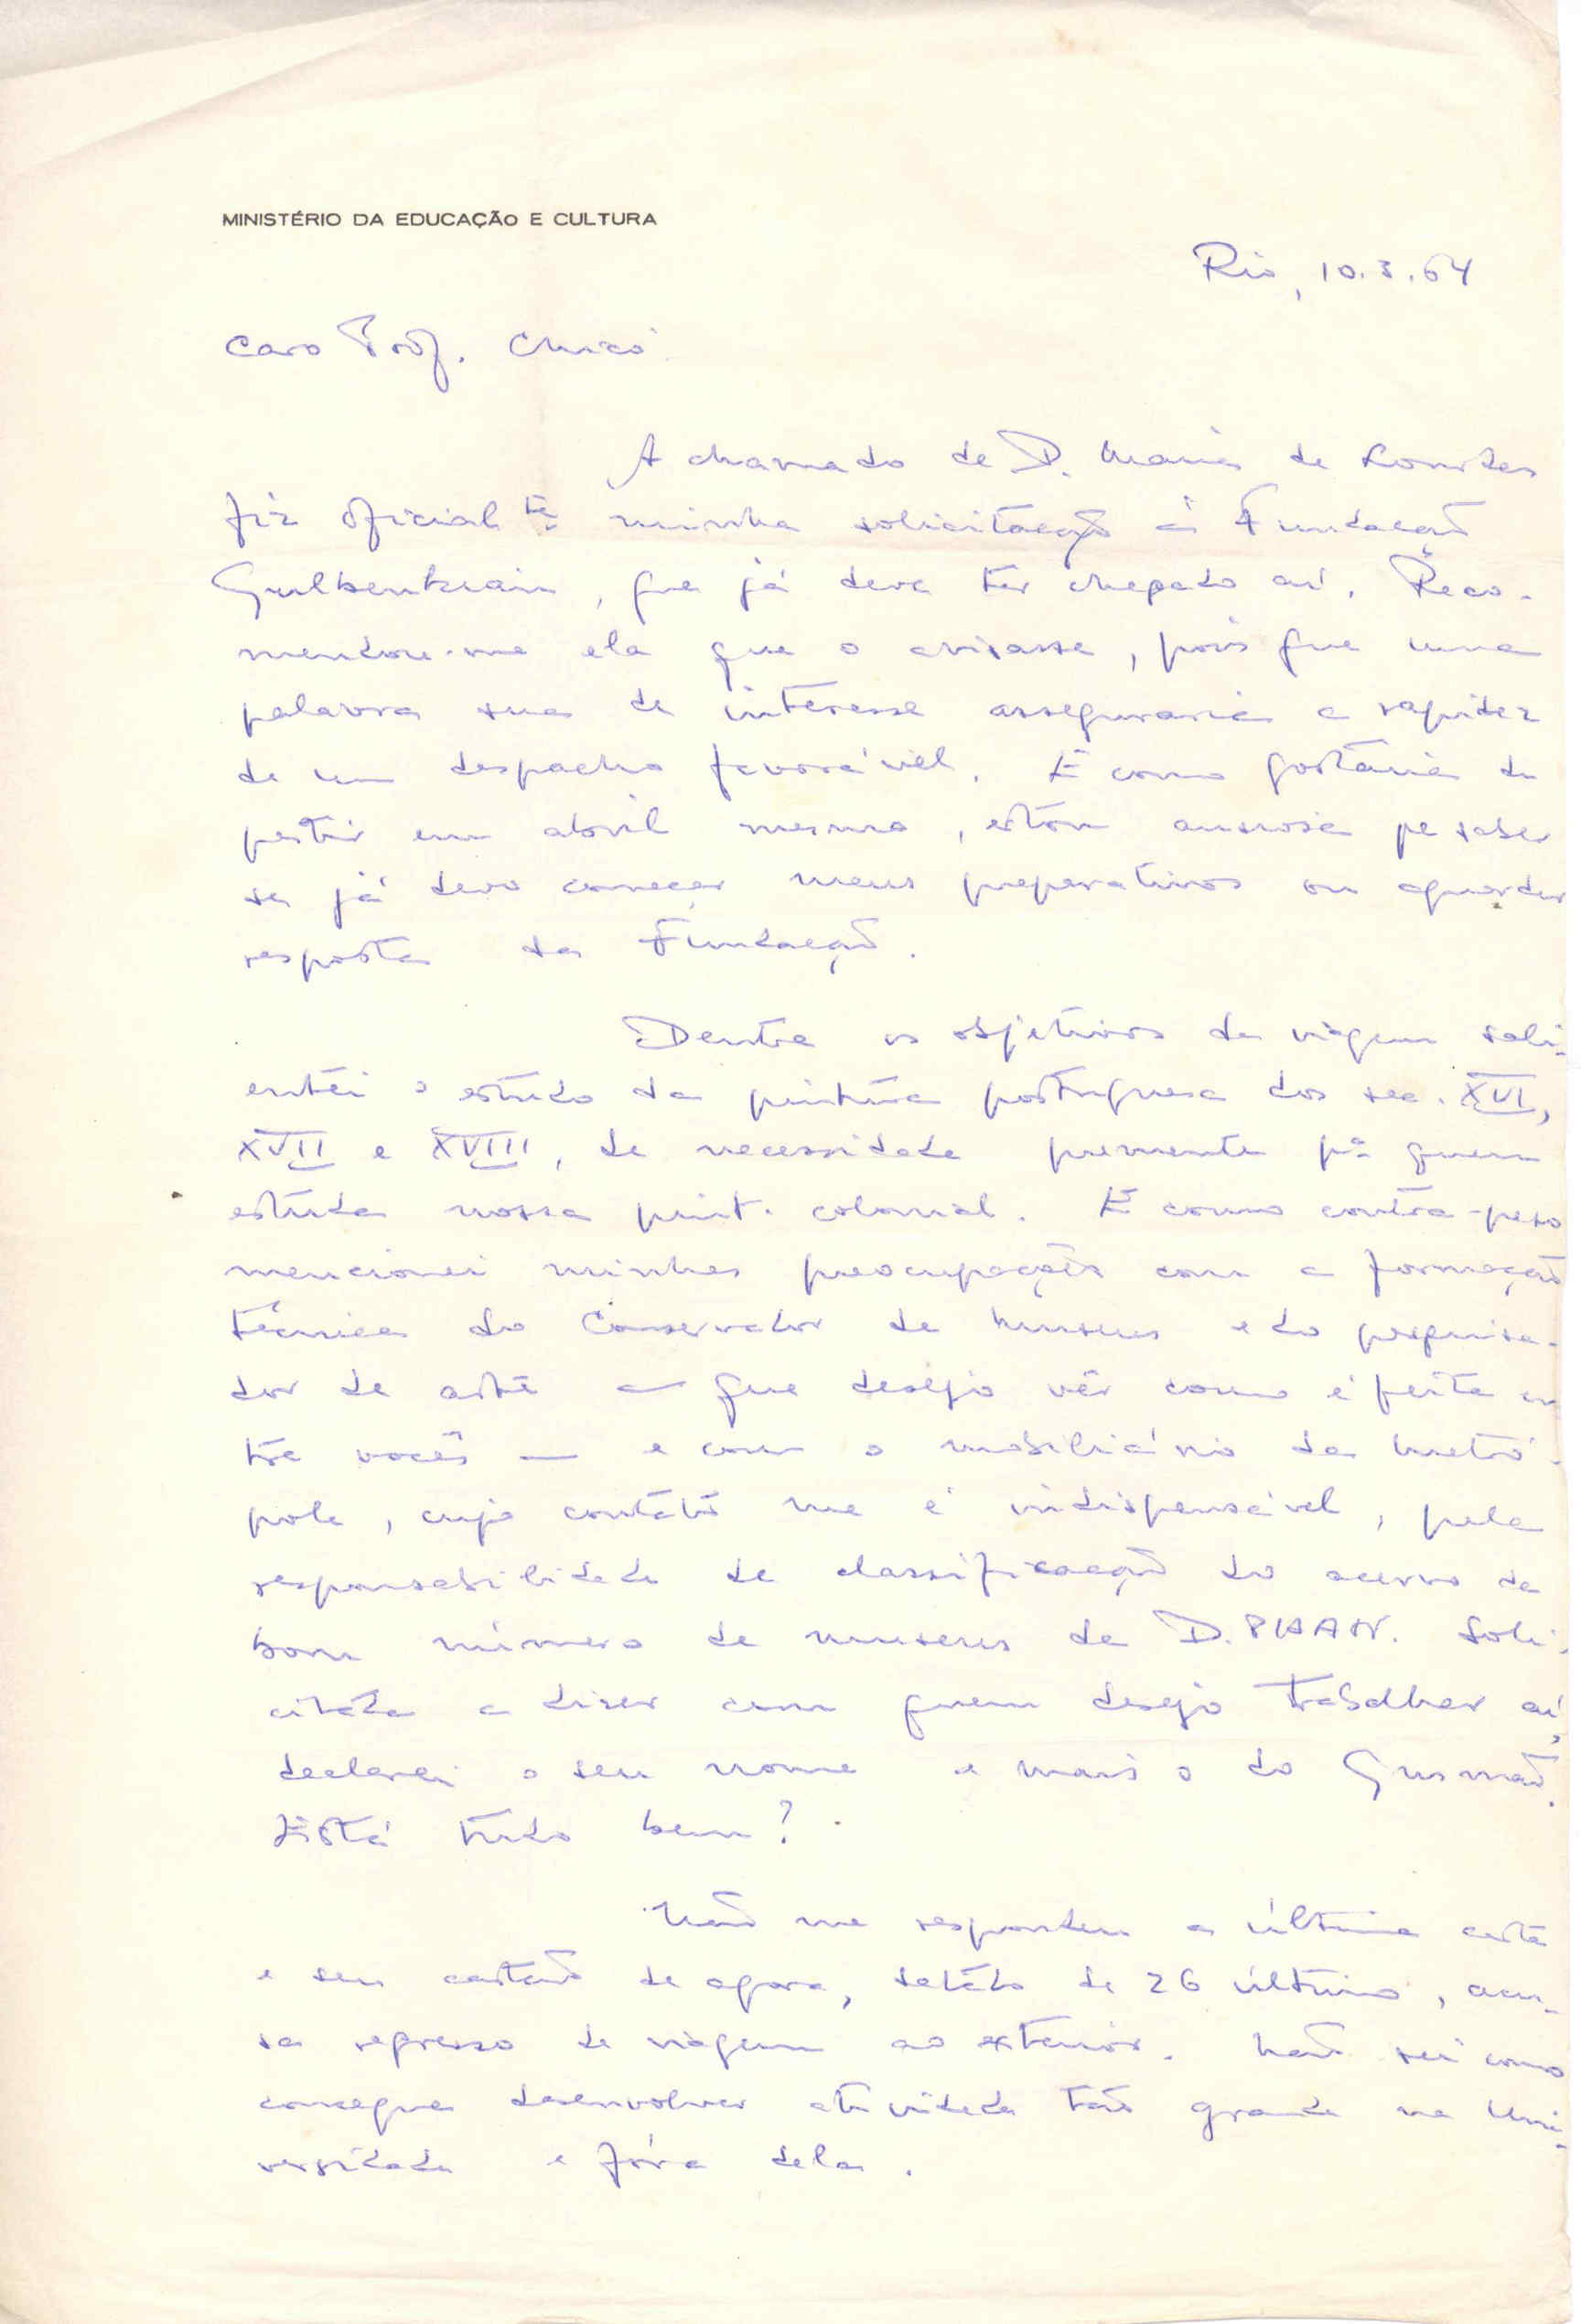 MINISTÉRIO DA EDUCAÇÃO E CULTURA
Rio, 10.3.64
Caro Prof. Chicó
A chamado de D. Maria de Lourdes
fiz oficialte minha solicitação à Fundação
Gulbenkian, que já deve ter chegado aí. Reco-
mendou-me ela que o avisasse, pois que uma
palavra sua de interesse asseguraria a rapidez
de um despacho favorável. E como gostaria de
partir em abril mesmo, estou ansiosa pe saber
se já devo começar meus preparativos ou aguardar
resposta da Fundação.
Dentre os objetivos da viagem sali-
entei o estudo da pintura portuguesa dos sec. XVI,
XVII e XVIII, de necessidade premente pa quem
estuda nossa pint. colonial. E como contra-peso
mencionei minhas preocupações com a formação
técnica do Conservador de Museus e do pesquisa-
dor de arte — que desejo vêr como é feita en
tre vocês — e com o mobiliário da Metró-
pole, cujo contáto me é indispensável, pela
responsabilidade de classificação do acervo de
bom número de museus da D.PHAN. Soli-
citada a dizer com quem desejo trabalhar aí,
declarei o seu nome e mais o do Gusmão.
Está tudo bem?
Não me respondeu a última carta
e seu cartão de agora, datado de 26 último, acu-
sa regresso de viagem ao exterior. Não sei como
consegue desenvolver atividade tão grande na Uni-
versidade e fóra dela.